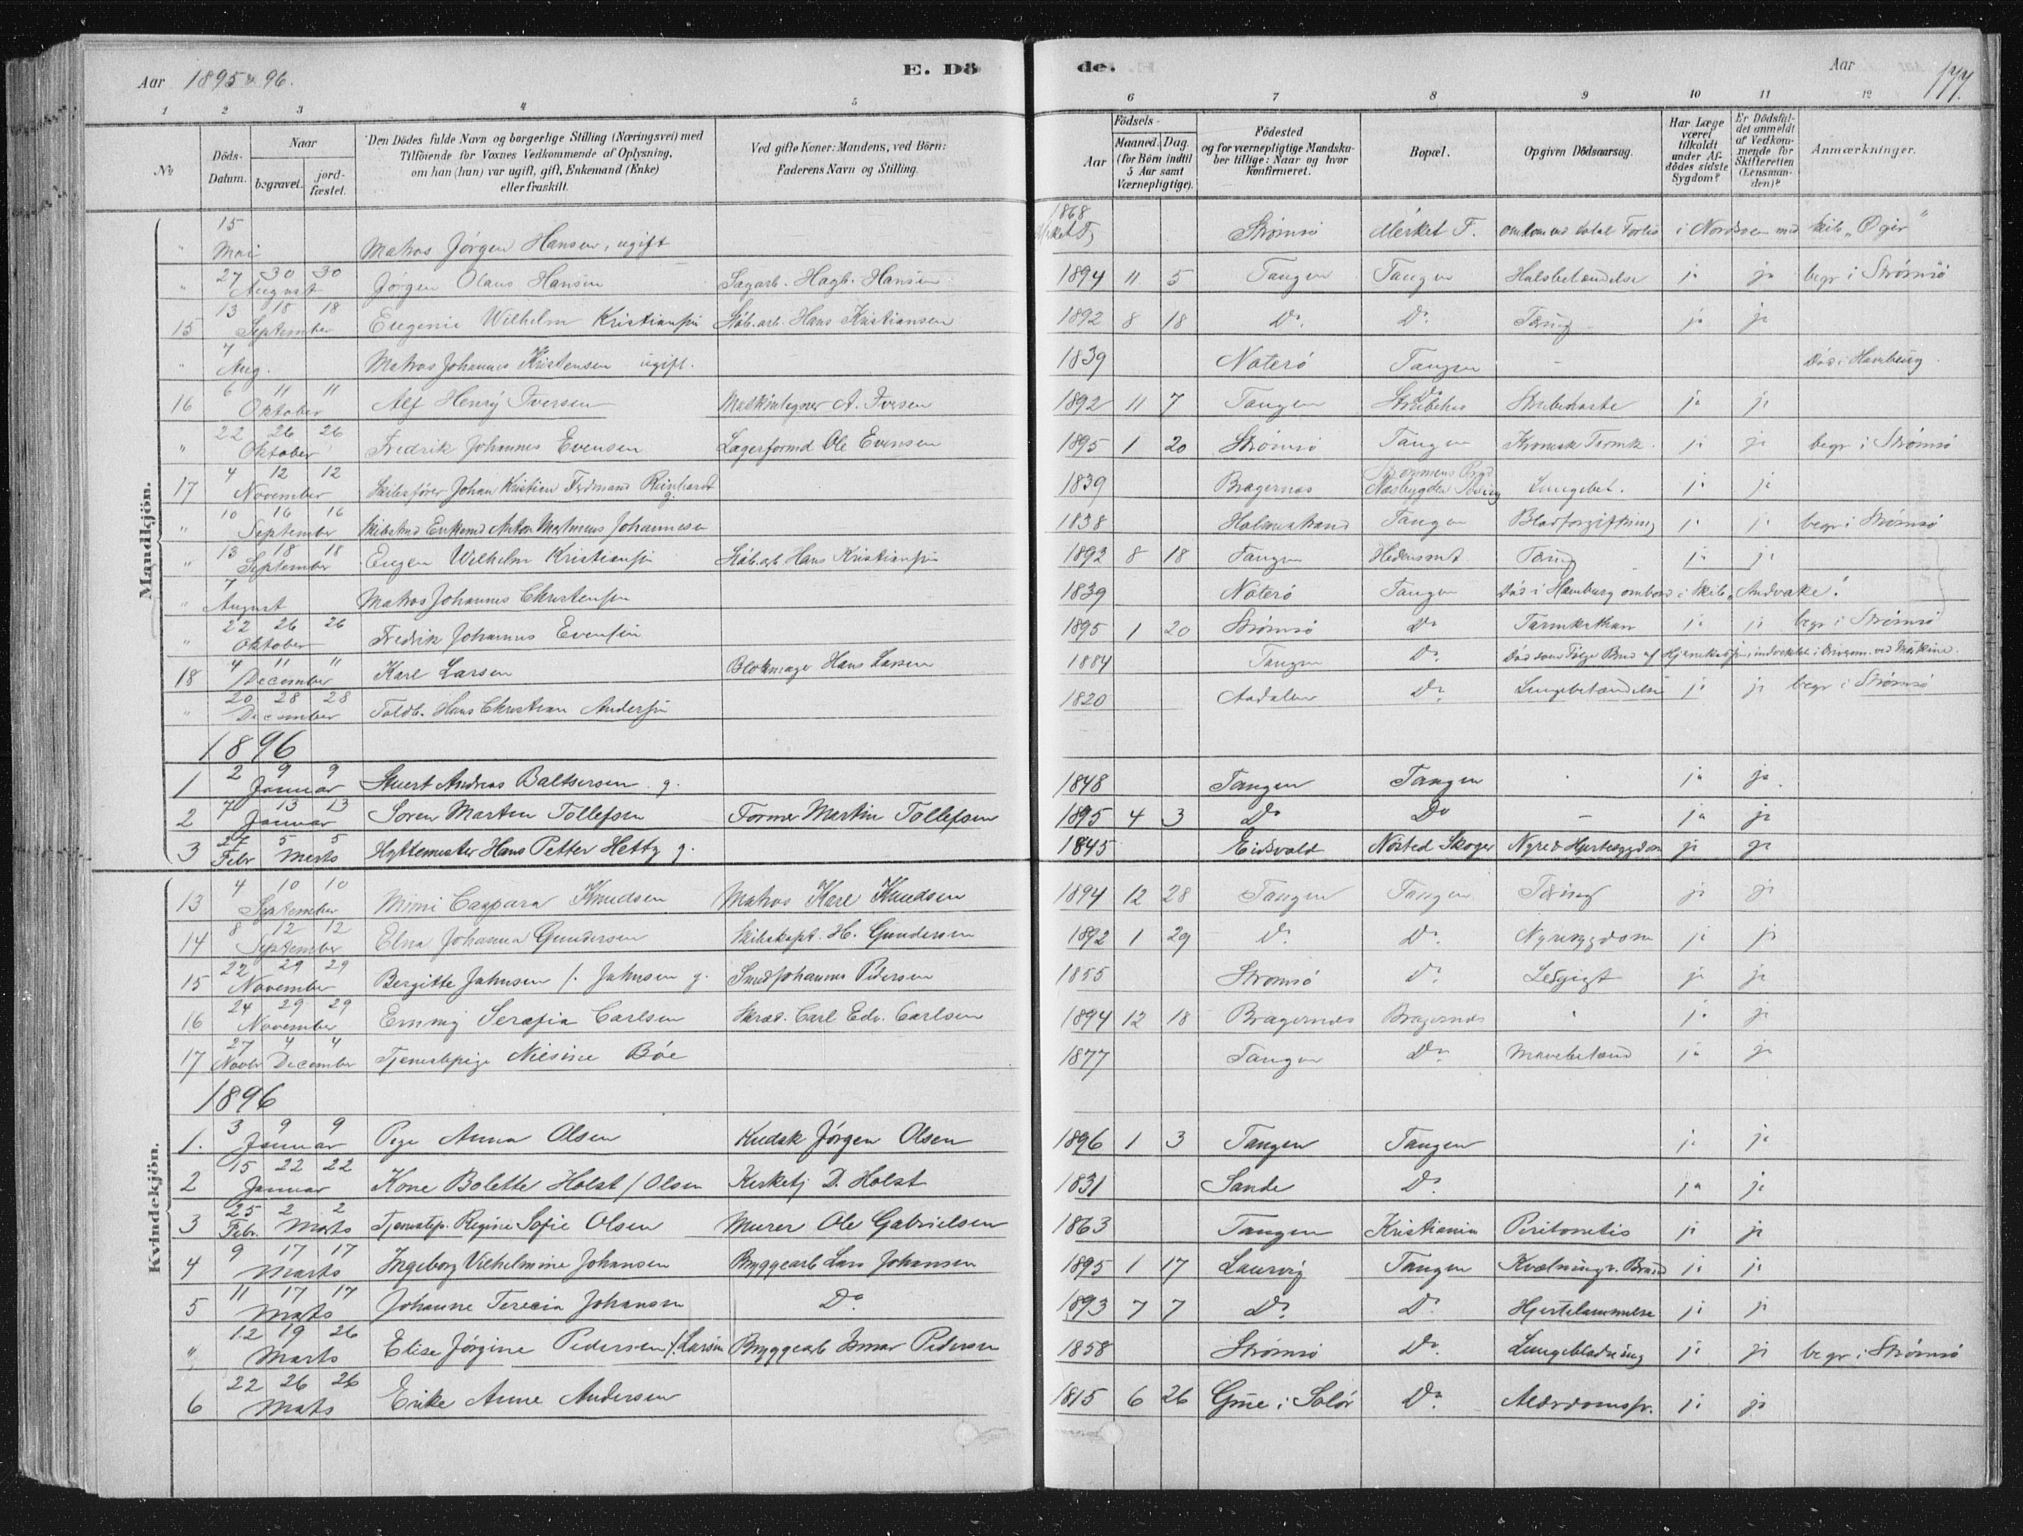 Aar 1895 & 96. E. Dö de. Aar 177.
1 2 3 4 5 6 7 8 9 10 11 12
No
Döds-Datum.
Naar
begravet. jord-fæstet.
Den Dödes fulde Navn og borgerlige Stilling (Næringsvei) med
Tilföiende for Voxnes Vedkommende af Oplysning,
om han (hun) var ugift, gift, Enkemand (Enke)
eller fraskilt.
Ved gifte Koner: Mandens, ved Börn:
Faderens Navn og Stilling.
Födsels-
Aar Maaned. Dag.
(for Börn indtil
5 Aar samt
Værnepligtige).
Födested
og for værnepligtige Mandska-
ber tillige: Naar og hvor
konfirmeret.
Bopæl.
Opgiven Dödsaarsag.
Har Læge
været
tilkaldt
under Af-
dödes sidste
Sygdom?
Er Dödsfal-
det anmeldt
af Vedkom-
mende for
Skifteretten
(Lensman-
den)?
Anmærkninger.
Mandkjön.
" 15 Mai Matros Jørgen Hansen, ugift 1868 Strømsø Mærket F. omkom ved total Forlis i Nordsøen med skib "Øgir"
" 27 30 30 August Jørgen Olaus Hansen Sagarb. Hagb. Hansen 1894 11 5 Tangen Tangen Halsbetændelse ja ja begr i Strømsø
15 13 18 18 September Eugenie Wilhelm Kristiansen Støb. arb. Hans Kristiansen 1892 8 18 Do. Do. Tæring ja ja
" 7 Aug. Matros Johannes Kristensen ugift. 1839 Noterø Tangen - Død i Hamburg.
16 6 11 11 Oktober Alf Henry Iversen Maskinbygger A. Iversen 1892 11 7 Tangen Do Strubehoste ja ja
" 22 26 26 Oktober Fredrik Johannes Evensen Lagerformd Ole Evensen 1895 1 20 Strømsø Tangen Kronisk Tarmk. ja ja begr i Strømsø
17 4 12 12 November Skibsfører Johan Kristian Ferdinand Reinhardt g. 1839 Bragernæs Lungebet. ja ja
" 10 16 16 September Skibstmd Enkemd Anton Johannesen 1838 Holmestrand Tangen Blodforgiftning ja ja begr i Strømsø
" 13 18 18 September Eugen Wilhelm Kristiansen Støb. arb. Hans Kristiansen 1892 8 18 Tangen Tæring ja ja
" 7 August Matros Johannes Christensen 1839 Noterø Tangen Død i Hamburg ombord i Skib. "Andvake"
" 22 26 26 Oktober Fredrik Johannes Evensen 1895 1 20 Strømsø Do Tarmkathar ja ja begr i Strømsø
18 4 11 11 December Karl Larsen Blokmager Hans Larsen 1884 Tangen Do. Død som Følge Brud af Hjerneskallen ved Maskine.
" 20 28 28 December Toldb. Hans Christian Andersen 1820 Aadalen Do Lungebetændelse ja ja begr i Strømsø
1896
1 2 9 9 Januar Stuert Andreas Baltsersen g. 1848 Tangen Tangen ja ja.
2 7 13 13 Januar Søren Marten Tollefsen Former Martin Tollefsen 1895 4 3 Do Do - ja ja
3 27 Febr 5 5 Marts Hyttemester Hans Petter Hetty g. 1845 Eidsvold Nøsted Skoger Nyre & Hjertesygdom ja ja
Kvindekjön.
13 4 10 10 September Mimi Caspara Knudsen Matros Karl Knudsen 1894 12 28 Tangen Tangen Tæring ja ja
14 8 12 12 September Elna Johanna Gundersen Skibskapt. H. Gundersen 1892 1 29 Do. Do. Nyresygdom ja ja
15 22 29 29 November Bergitte Johnsen f. Johnsen g. Smed Johannes Pedersen 1855 Strømsø Do. Ledgigt ja ja
16 24 29 29 November Emmy Serafia Carlsen Skræd. Carl Edv. Carlsen 1894 12 18 Bragernæs Bragernæs ja ja
17 27 4 4 Novbr December Tjenestepige Nilsine Bøe 1877 Tangen Do Mavebetænd ja ja
1896
1. 3 9 9 Januar Pige Anna Olsen Kudsk Jørgen Olsen 1896 1 3 Tangen Tangen ja ja
2 15 22 22 Januar Kone Bolette Holst f Olsen Kirketj D. Holst 1831 Sande Do. ja ja
3 25 2 2 Febr. Marts Tjenestep. Regine Sofie Olsen Murer Ole Gabrielsen 1863 Tangen Kristiania Peritonetis ja ja
4 9 17 17 Marts Ingeborg Vilhelmine Johansen Bryggearb Lars Johansen 1895 1 17 Laurvig Tangen Kvælning v. Brand ja ja
5 11 17 17 Marts Johanne Terecia Johansen Do 1893 7 7 Do. Do. Hjertelammelse ja ja
" 12 19 26 Marts Elise Jørgine Pedersen f. Larsen Bryggearb Pedersen 1858 Strømsø Do. Lungeblødning ja ja begr i Strømsø
6 22 26 26 Marts Erike Anne Andersen 1815 6 26 Grue i Solør Do. Alderdomssv. ja ja